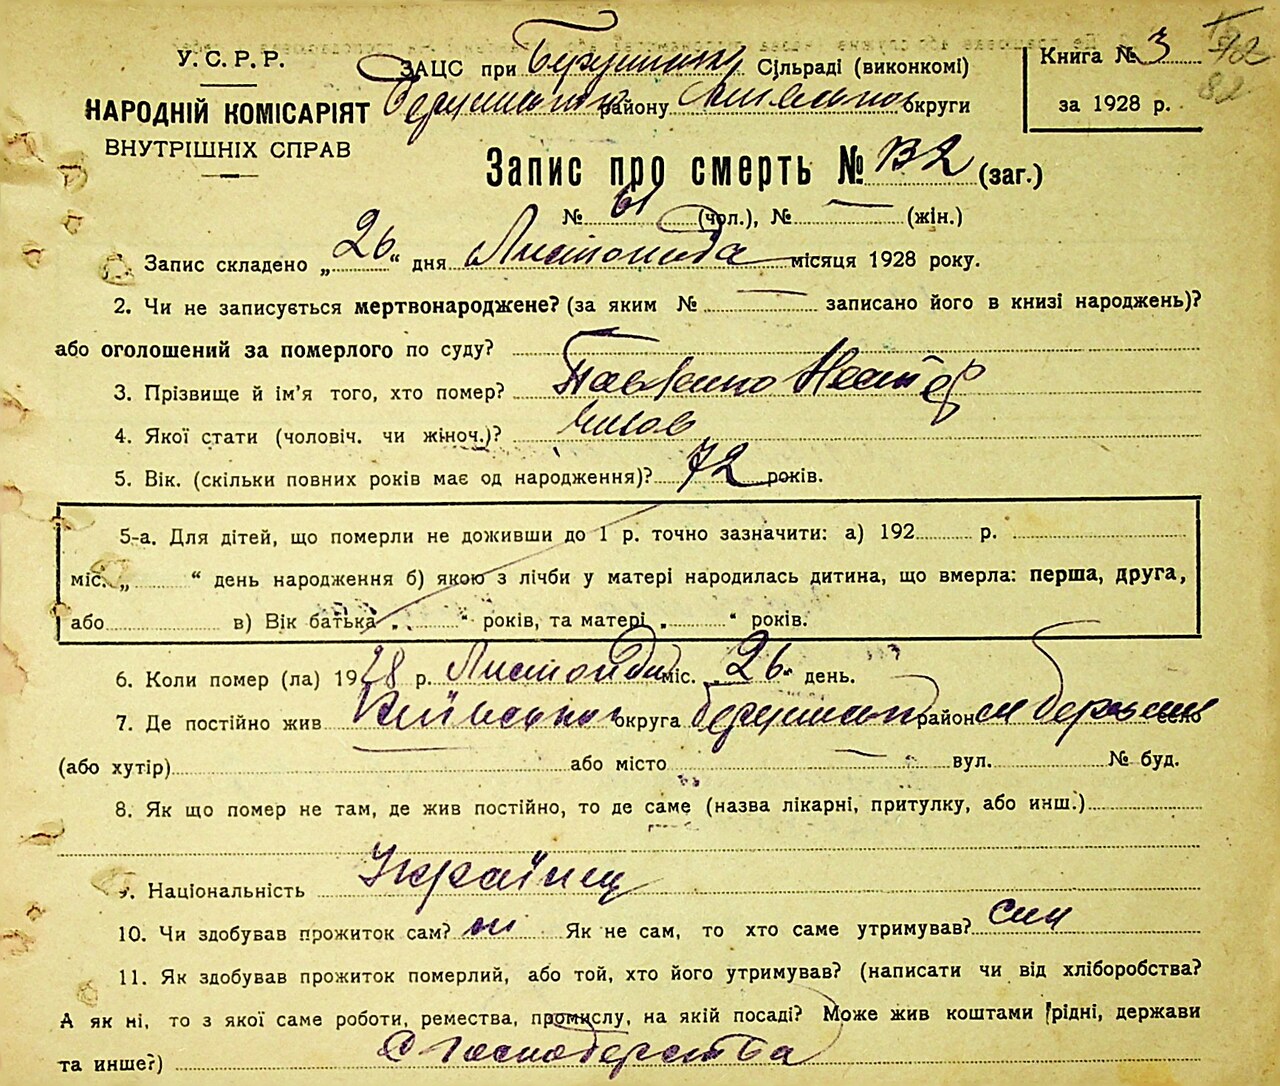 У. С. Р. Р.
НАРОДНІЙ КОМІСАРІЯТ
ВНУТРІШНІХ СПРАВ
ЗАЦС при Сільраді (виконкомі)
району округи
Книга № 3
за 1928 р.
82
Запис про смерть № 132 (заг.)
№ 61 (чол.), № — (жін.)
Запис складено „26“ дня Листопада місяця 1928 року.
2. Чи не записується мертвонароджене? (за яким № — записано його в книзі народжень)?
або оголошений за померлого по суду? —
3. Прізвище й ім'я того, хто помер? Павленко Нестор
4. Якої стати (чоловіч. чи жіноч.)? чолов
5. Вік. (скільки повних років має од народження)? 72 років.
5-а. Для дітей, що померли не доживши до 1 р. точно зазначити: а) 192 р.
міс. „ “ день народження б) якою з лічби у матері народилась дитина, що вмерла: перша, друга,
або в) Вік батька „ “ років, та матері „ “ років.
6. Коли помер (ла) 1928 р. Листопада міс. „26“ день.
7. Де постійно жив Київської округа район село
(або хутір) або місто — вул. № буд.
8. Як що помер не там, де жив постійно, то де саме (назва лікарні, притулку, або инш.)
9. Національність Українец
10. Чи здобував прожиток сам? ні Як не сам, то хто саме утримував? син
11. Як здобував прожиток померлий, або той, хто його утримував? (написати чи від хліборобства?
А як ні, то з якої саме роботи, ремества, промислу, на якій посаді? Може жив коштами рідні, держави
та инше?) С господарства